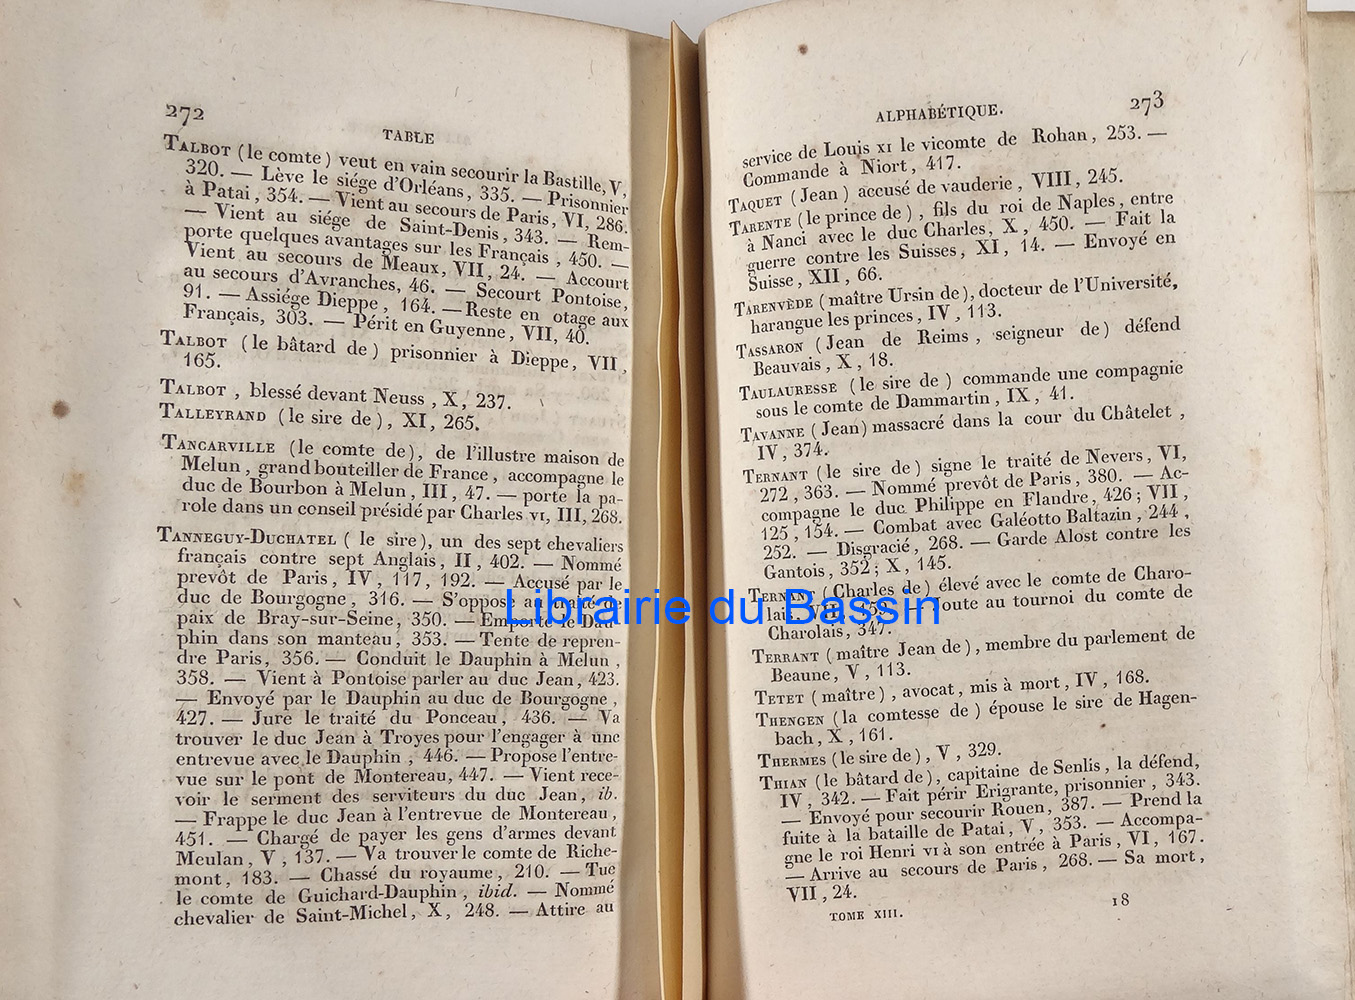 272
TABLE
TALBOT (le comte) veut en vain secourir la Bastille, V,
320. — Lève le siége d'Orléans, 335. — Prisonnier
à Patai, 354. — Vient au secours de Paris, VI, 286.
— Vient au siége de Saint-Denis, 343. — Rem-
porte quelques avantages sur les Français, 450. —
Vient au secours de Meaux, VII, 24. — Accourt
au secours d'Avranches, 46. — Secourt Pontoise,
91. — Assiége Dieppe, 164. — Reste en otage aux
Français, 303. — Périt en Guyenne, VII, 40.
TALBOT (le bâtard de) prisonnier à Dieppe, VII,
165.
TALBOT, blessé devant Neuss, X, 237.
TALLEYRAND (le sire de), XI, 265.
TANCARVILLE (le comte de), de l'illustre maison de
Melun, grand bouteiller de France, accompagne le
duc de Bourbon à Melun, III, 47. — porte la pa-
role dans un conseil présidé par Charles VI, III, 268.
TANNEGUY-DUCHATEL (le sire), un des sept chevaliers
français contre sept Anglais, II, 402. — Nommé
prevôt de Paris, IV, 117, 192. — Accusé par le
duc de Bourgogne, 316. — S'oppose au traité de
paix de Bray-sur-Seine, 350. — Emporte le Dau-
phin dans son manteau, 353. — Tente de repren-
dre Paris, 356. — Conduit le Dauphin à Melun,
358. — Vient à Pontoise parler au duc Jean, 423.
— Envoyé par le Dauphin au duc de Bourgogne,
427. — Jure le traité du Ponceau, 436. — Va
trouver le duc Jean à Troyes pour l'engager à une
entrevue avec le Dauphin, 446. — Propose l'entre-
vue sur le pont de Montereau, 447. — Vient rece-
voir le serment des serviteurs du duc Jean, ib.
— Frappe le duc Jean à l'entrevue de Montereau,
451. — Chargé de payer les gens d'armes devant
Meulan, V, 137. — Va trouver le comte de Riche-
mont, 183. — Chassé du royaume, 210. — Tue
le comte de Guichard-Dauphin, ibid. — Nommé
chevalier de Saint-Michel, X, 248. — Attire au
ALPHABÉTIQUE.
273
service de Louis XI le vicomte de Rohan, 253. —
Commande à Niort, 417.
TAQUET (Jean) accusé de vauderie, VIII, 245.
TARENTE (le prince de), fils du roi de Naples, entre
à Nanci avec le duc Charles, X, 450. — Fait la
guerre contre les Suisses, XI, 14. — Envoyé en
Suisse, XII, 66.
TARENVÈDE (maître Ursin de), docteur de l'Université,
harangue les princes, IV, 113.
TASSARON (Jean de Reims, seigneur de) défend
Beauvais, X, 18.
TAULAURESSE (le sire de) commande une compagnie
sous le comte de Dammartin, IX, 41.
TAVANNE (Jean) massacré dans la cour du Châtelet,
IV, 374.
TERNANT (le sire de) signe le traité de Nevers, VI,
272, 363. — Nommé prevôt de Paris, 380. — Ac-
compagne le duc Philippe en Flandre, 426; VII,
125, 154. — Combat avec Galéotto Baltazin, 244,
252. — Disgracié, 268. — Garde Alost contre les
Gantois, 352; X, 145.
TERNANT (Charles de) élevé avec le comte de Charo-
lais, VII, 259. — Joute au tournoi du comte de
Charolais, 347.
TERRANT (maître Jean de), membre du parlement de
Beaune, V, 113.
TETET (maître), avocat, mis à mort, IV, 168.
THENGEN (la comtesse de) épouse le sire de Hagen-
bach, X, 161.
THERMES (le sire de), V, 329.
THIAN (le bâtard de), capitaine de Senlis, la défend,
IV, 342. — Fait périr Erigrante, prisonnier, 343.
— Envoyé pour secourir Rouen, 387. — Prend la
fuite à la bataille de Patai, V, 353. — Accompa-
gne le roi Henri VI à son entrée à Paris, VI, 167.
— Arrive au secours de Paris, 268. — Sa mort,
VII, 24.
TOME XIII.
18
Librairie du Bassin